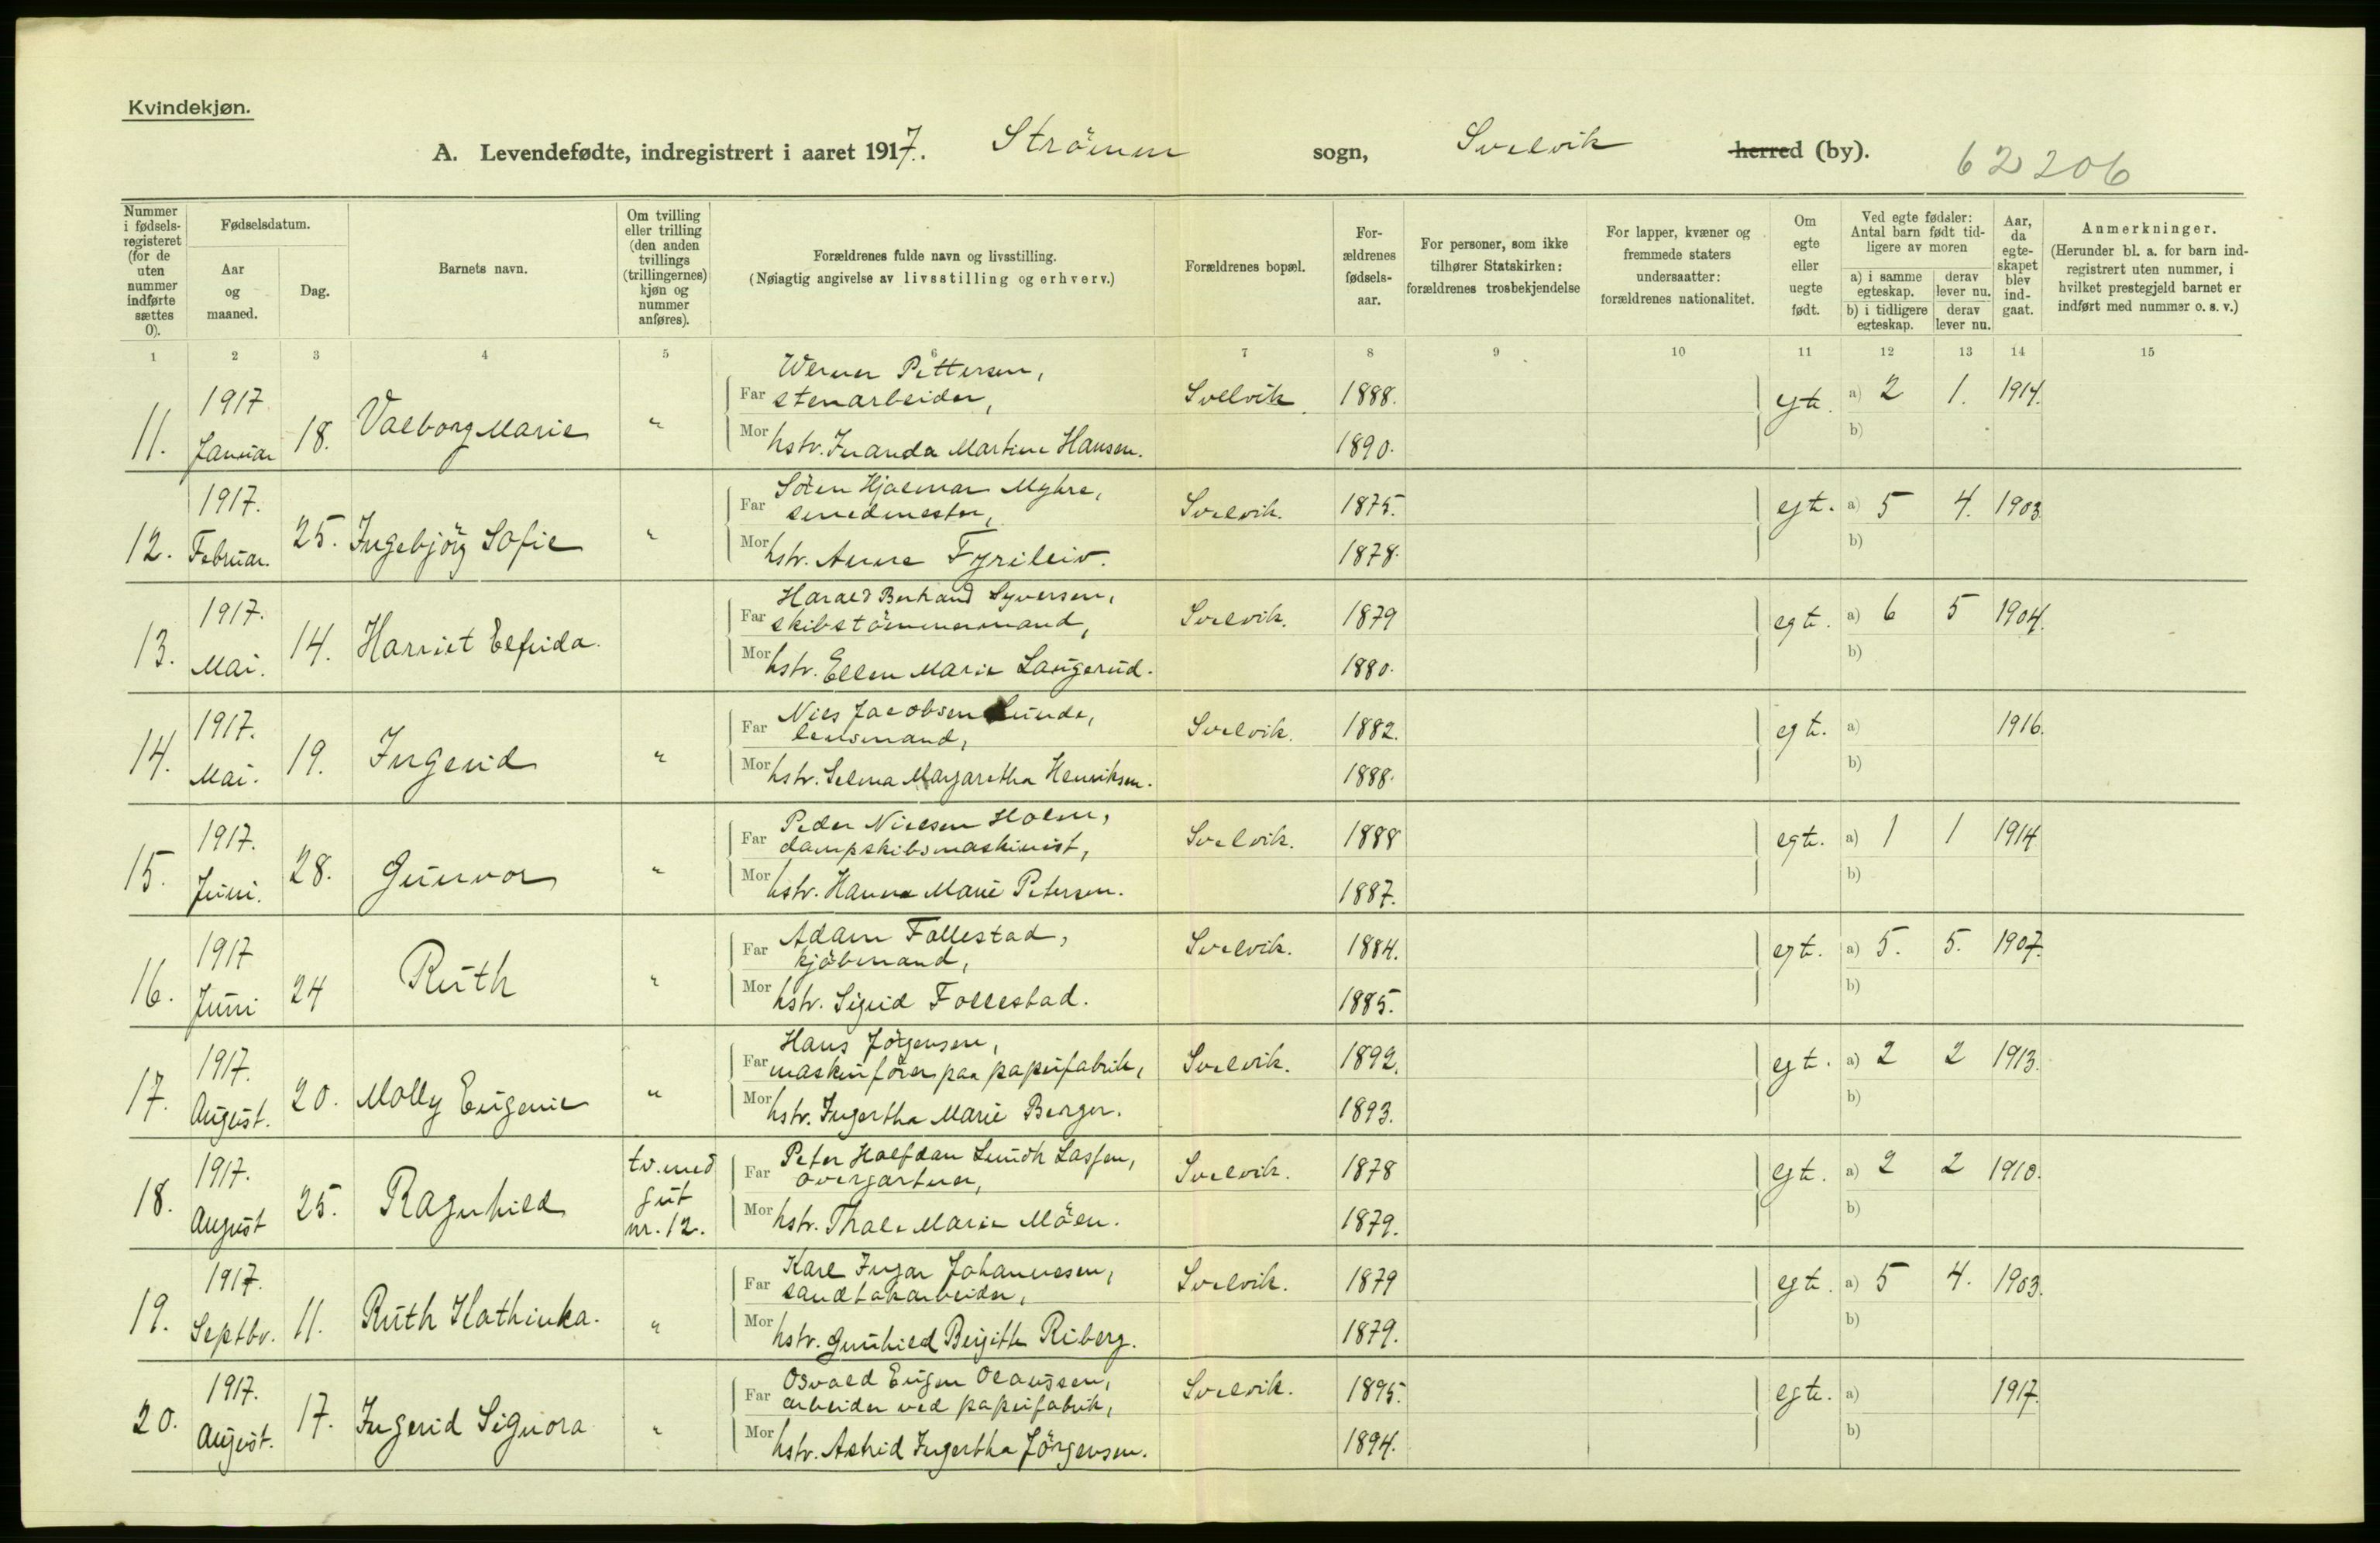 Kvindekjøn.
A. Levendefødte, indregistrert i aaret 1917. Strömm sogn, Svelvik herred (by). 62206
Nummer i fødselsregisteret (for de uten nummer indførte sættes 0).
Fødselsdatum.
Aar og maaned.
Dag.
Barnets navn.
Om tvilling eller trilling (den anden tvillings (trillingernes) kjøn og nummer anføres).
Forældrenes fulde navn og livsstilling.
(Nøiagtig angivelse av livsstilling og erhverv.)
Forældrenes bopæl.
Forældrenes fødselsaar.
For personer, som ikke tilhører Statskirken: forældrenes trosbekjendelse
For lapper, kvæner og fremmede staters undersaatter: forældrenes nationalitet.
Om egte eller uegte født.
Ved egte fødsler: Antal barn født tidligere av moren
a) i samme egteskap. derav lever nu.
b) i tidligere egteskap. derav lever nu.
Aar, da egteskapet blev indgaat.
Anmerkninger.
(Herunder bl. a. for barn indregistrert uten nummer, i hvilket prestegjeld barnet er indført med nummer o. s. v.)
1 2 3 4 5 6 7 8 9 10 11 12 13 14 15
Werner Pettersen,
1917 Far stenarbeider, Svelvik. 1888. egte. a) 2 1. 1914.
11. Januar 18. Valborg Marie " b)
Mor hstr. Inanda Martine Hansen. 1890.
Sören Hjalmar Myhre,
1917. Far smedmester, Svelvik. 1875. egt. a) 5 4. 1903
12. Februar. 25. Ingebjörg Sofie " b)
Mor hstr. Anne Fyrileiv. 1878.
Harald Berhand Syversen,
1917. Far skibstömmermand, Svelvik. 1879 egt. a) 6 5 1904.
13. Mai. 14. Harriet Elfrida. b)
Mor hstr. Ellen Marie Laugerud. 1880.
Nils Jacobsen Lunde,
1917. Far lensmand, Svelvik. 1882. egt. a) 1916.
14. Mai. 19. Ingerid " b)
Mor hstr. Selma Margaretha Henriksen. 1888.
Peder Nielsen Holm,
1917. Far dampskibsmaskinist, Svelvik. 1888 egt. a) 1 1 1914
15. Juni. 28. Gunvor " b)
Mor hstr. Hanna Marie Petersen. 1887.
Adam Follestad,
1917 Far kjöbmand, Svelvik. 1884. egt. a) 5. 5. 1907.
16. Juni 24 Ruth " b)
Mor hstr. Sigrid Follestad. 1885.
Hans Jörgensen,
1917. Far maskinförer paa papirfabrik, Svelvik. 1892. egt. a) 2 2 1913.
17. August. 20. Molly Eugenie " b)
Mor hstr. Ingertha Marie Berger. 1893.
tv. med Peter Halfdan Lundh Lassen,
1917. gut Far overgartner, Svelvik. 1878 egt. a) 2 2 1910.
18. August 25. Ragnhild nr. 12. b)
Mor hstr. Thale Marie Möen. 1879.
Karl Ingar Johannesen,
1917. Far sandtakarbeider, Svelvik. 1879 egt. a) 5 4. 1903.
19. Septbr. 11. Ruth Kathinka. " b)
Mor hstr. Gunhild Birgitte Riberg. 1879.
Osvald Eugen Olaussen,
1917. Far arbeider ved papirfabrik, Svelvik. 1895. egt. a) 1917.
20. August. 17. Ingerid Signora " b)
Mor hstr. Astrid Ingertha Jörgensen. 1894.